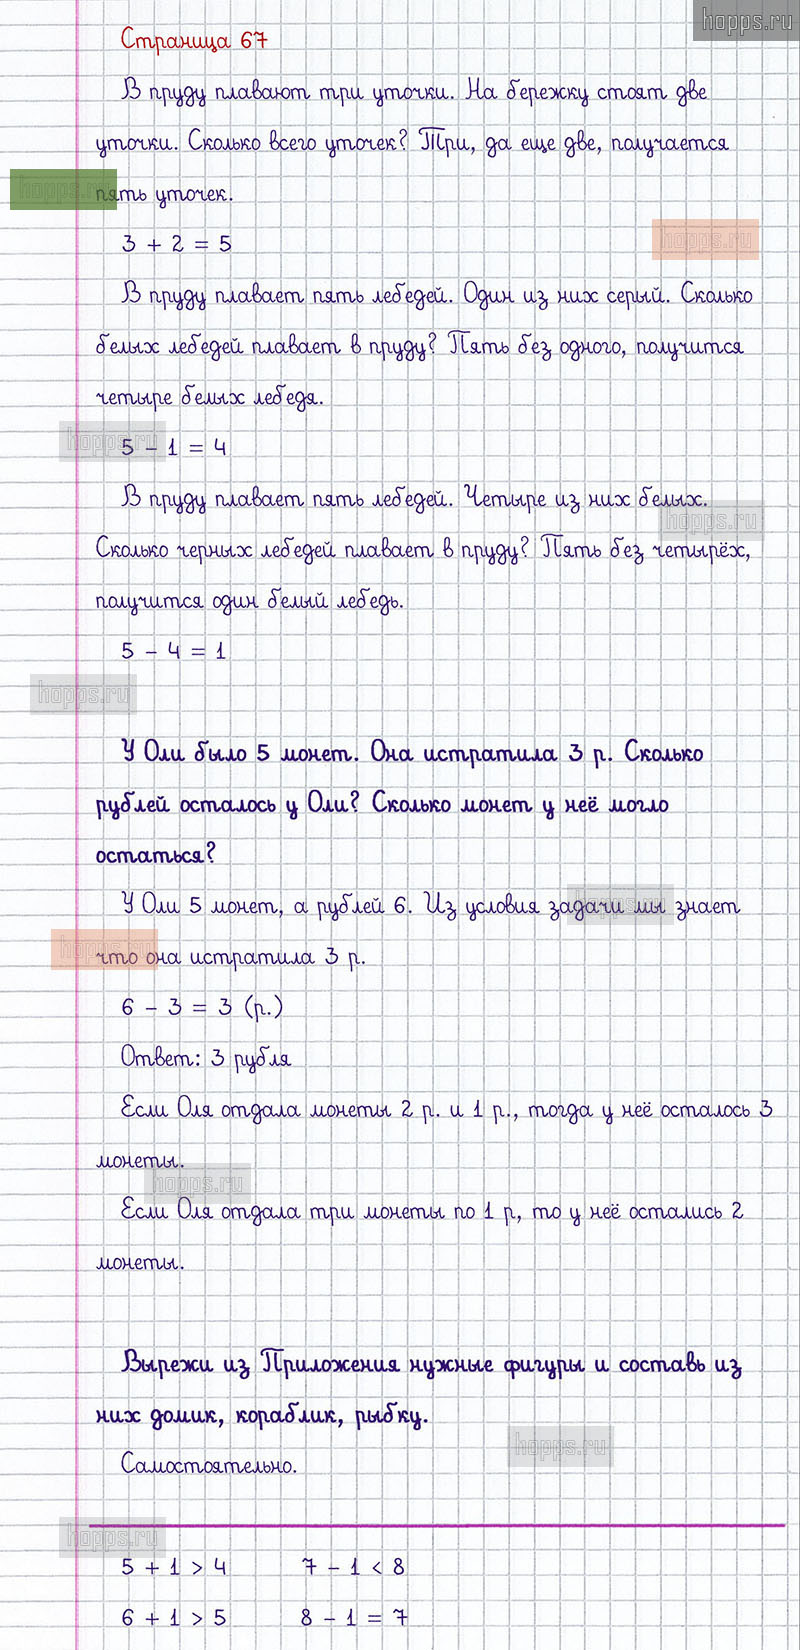 hopps.ru
Страница 67
В пруду плавают три уточки. На бережку стоят две
уточки. Сколько всего уточек? Три, да еще две, получается
hopps.ru
пять уточек.
3 + 2 = 5
hopps.ru
В пруду плавает пять лебедей. Один из них серый. Сколько
белых лебедей плавает в пруду? Пять без одного, получится
четыре белых лебедя.
hopps.ru
5 - 1 = 4
В пруду плавает пять лебедей. Четыре из них белых.
hopps.ru
Сколько черных лебедей плавает в пруду? Пять без четырёх,
получится один белый лебедь.
5 - 4 = 1
hopps.ru
У Оли было 5 монет. Она истратила 3 р. Сколько
рублей осталось у Оли? Сколько монет у неё могло
остаться?
У Оли 5 монет, а рублей 6. Из условия задачи мы знает
hopps.ru
hopps.ru
что она истратила 3 р.
6 - 3 = 3 (р.)
Ответ: 3 рубля
Если Оля отдала монеты 2 р. и 1 р., тогда у неё осталось 3
монеты.
hopps.ru
Если Оля отдала три монеты по 1 р, то у неё остались 2
монеты.
Вырежи из Приложения нужные фигуры и составь из
них домик, кораблик, рыбку.
hopps.ru
Самостоятельно.
hopps.ru
5 + 1 > 4 7 - 1 < 8
6 + 1 > 5 8 - 1 = 7